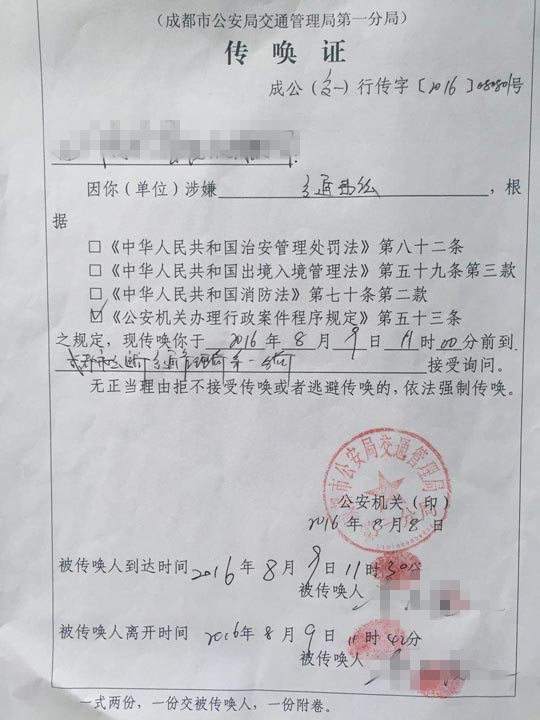 （成都市公安局交通管理局第一分局）
传唤证
成公（交一）行传字〔2016〕080801号
因你（单位）涉嫌 交通违法 ，根
据
□《中华人民共和国治安管理处罚法》第八十二条
□《中华人民共和国出境入境管理法》第五十九条第三款
□《中华人民共和国消防法》第七十条第二款
☑《公安机关办理行政案件程序规定》第五十三条
之规定，现传唤你于 2016 年 8 月 9 日 11 时 00 分前到
成都市公安局交通管理局第一分局 接受询问。
无正当理由拒不接受传唤或者逃避传唤的，依法强制传唤。
成都市公安局交通管理局
第一分局
公安机关（印）
2016 年 8 月 8 日
被传唤人到达时间 2016 年 8 月 9 日 11 时 30 分
被传唤人
被传唤人离开时间 2016 年 8 月 9 日 11 时 42 分
被传唤人
一式两份，一份交被传唤人，一份附卷。